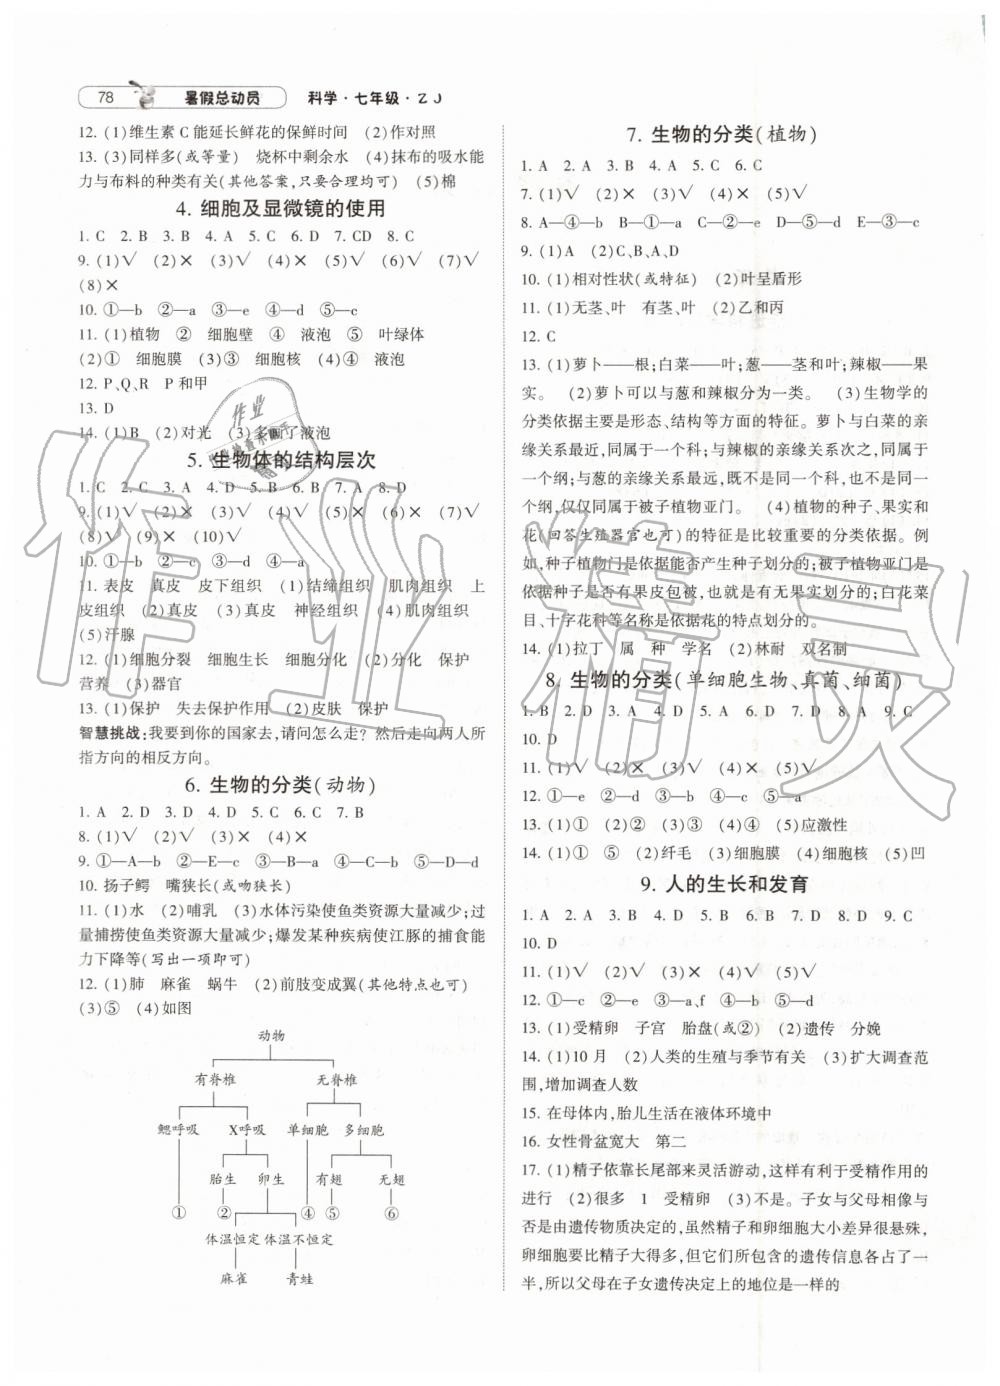 78 暑假总动员 科学·七年级·ZJ
12. (1)维生素C能延长鲜花的保鲜时间 (2)作对照
13. (3)同样多(或等量) 烧杯中剩余水 (4)抹布的吸水能
力与布料的种类有关(其他答案,只要合理均可) (5)棉
4. 细胞及显微镜的使用
1. C 2. B 3. B 4. A 5. C 6. D 7. CD 8. C
9. (1)√ (2)× (3)√ (4)√ (5)√ (6)√ (7)√
(8)×
10. ①—b ②—a ③—e ④—d ⑤—c
11. (1)植物 ② 细胞壁 ④ 液泡 ⑤ 叶绿体
(2)① 细胞膜 (3)③ 细胞核 (4)④ 液泡
12. P、Q、R P和甲
13. D
14. (1)B (2)对光 (3)多画了液泡
5. 生物体的结构层次
1. C 2. C 3. A 4. D 5. B 6. B 7. A 8. D
9. (1)√ (2)× (3)√ (4)√ (5)× (6)× (7)√
(8)√ (9)× (10)√
10. ①—b ②—c ③—d ④—a
11. 表皮 真皮 皮下组织 (1)结缔组织 肌肉组织 上
皮组织 (2)真皮 (3)真皮 神经组织 (4)肌肉组织
(5)汗腺
12. (1)细胞分裂 细胞生长 细胞分化 (2)分化 保护
营养 (3)器官
13. (1)保护 失去保护作用 (2)皮肤 保护
智慧挑战:我要到你的国家去,请问怎么走? 然后走向两人所
指方向的相反方向。
6. 生物的分类(动物)
1. A 2. D 3. D 4. D 5. C 6. C 7. B
8. (1)√ (2)√ (3)× (4)×
9. ①—A—b ②—E—c ③—B—a ④—C—e ⑤—D—d
10. 扬子鳄 嘴狭长(或吻狭长)
11. (1)水 (2)哺乳 (3)水体污染使鱼类资源大量减少;过
量捕捞使鱼类资源大量减少;爆发某种疾病使江豚的捕食能
力下降等(写出一项即可)
12. (1)肺 麻雀 蜗牛 (2)前肢变成翼(其他特点也可)
(3)⑤ (4)如图
动物
有脊椎 无脊椎
鳃呼吸 X呼吸 单细胞 多细胞
胎生 卵生 有翅 无翅
① ② ④ ⑤ ⑥
体温恒定 体温不恒定
麻雀 青蛙
7. 生物的分类(植物)
1. A 2. A 3. B 4. A 5. C 6. C
7. (1)√ (2)× (3)√ (4)× (5)√
8. A—④—b B—①—a C—②—e D—⑤—d E—③—c
9. (1)A (2)C、B、A、D
10. (1)相对性状(或特征) (2)叶呈盾形
11. (1)无茎、叶 有茎、叶 (2)乙和丙
12. C
13. (1)萝卜——根;白菜——叶;葱——茎和叶;辣椒——果
实。 (2)萝卜可以与葱和辣椒分为一类。 (3)生物学的
分类依据主要是形态、结构等方面的特征。萝卜与白菜的亲
缘关系最近,同属于一个科;与辣椒的亲缘关系次之,同属于
一个纲;与葱的亲缘关系最远,既不同属于一个科,也不同属一
个纲,仅仅同属于被子植物亚门。 (4)植物的种子、果实和
花(回答生殖器官也可)的特征是比较重要的分类依据。例
如,种子植物门是依据能否产生种子划分的;被子植物亚门是
依据种子是否有果皮包被,也就是有无果实划分的;白花菜
目、十字花科等名称是依据花的特点划分的。
14. (1)拉丁 属 种 学名 (2)林耐 双名制
8. 生物的分类(单细胞生物、真菌、细菌)
1. B 2. D 3. A 4. D 5. A 6. D 7. D 8. A 9. C
10. D
11. (1)√ (2)× (3)√ (4)× (5)√
12. ①—e ②—d ③—b ④—c ⑤—a
13. (1)① (2)② (3)③ (4)④ (5)应激性
14. (1)① ⑤ (2)纤毛 (3)细胞膜 (4)细胞核 (5)凹
9. 人的生长和发育
1. A 2. D 3. C 4. A 5. B 6. B 7. D 8. D 9. C
10. D
11. (1)√ (2)× (3)× (4)√ (5)√
12. ①—c ②—e ③—a、f ④—b ⑤—d
13. (1)受精卵 子宫 胎盘(或②) (2)遗传 分娩
14. (1)10月 (2)人类的生殖与季节有关 (3)扩大调查范
围,增加调查人数
15. 在母体内,胎儿生活在液体环境中
16. 女性骨盆宽大 第二
17. (1)精子依靠长尾部来灵活游动,这样有利于受精作用的
进行 (2)很多 1 受精卵 (3)不是。子女与父母相像与
否是由遗传物质决定的,虽然精子和卵细胞大小差异很悬殊,
卵细胞要比精子大得多,但它们所包含的遗传信息各占了一
半,所以父母在子女遗传决定上的地位是一样的
作业精灵